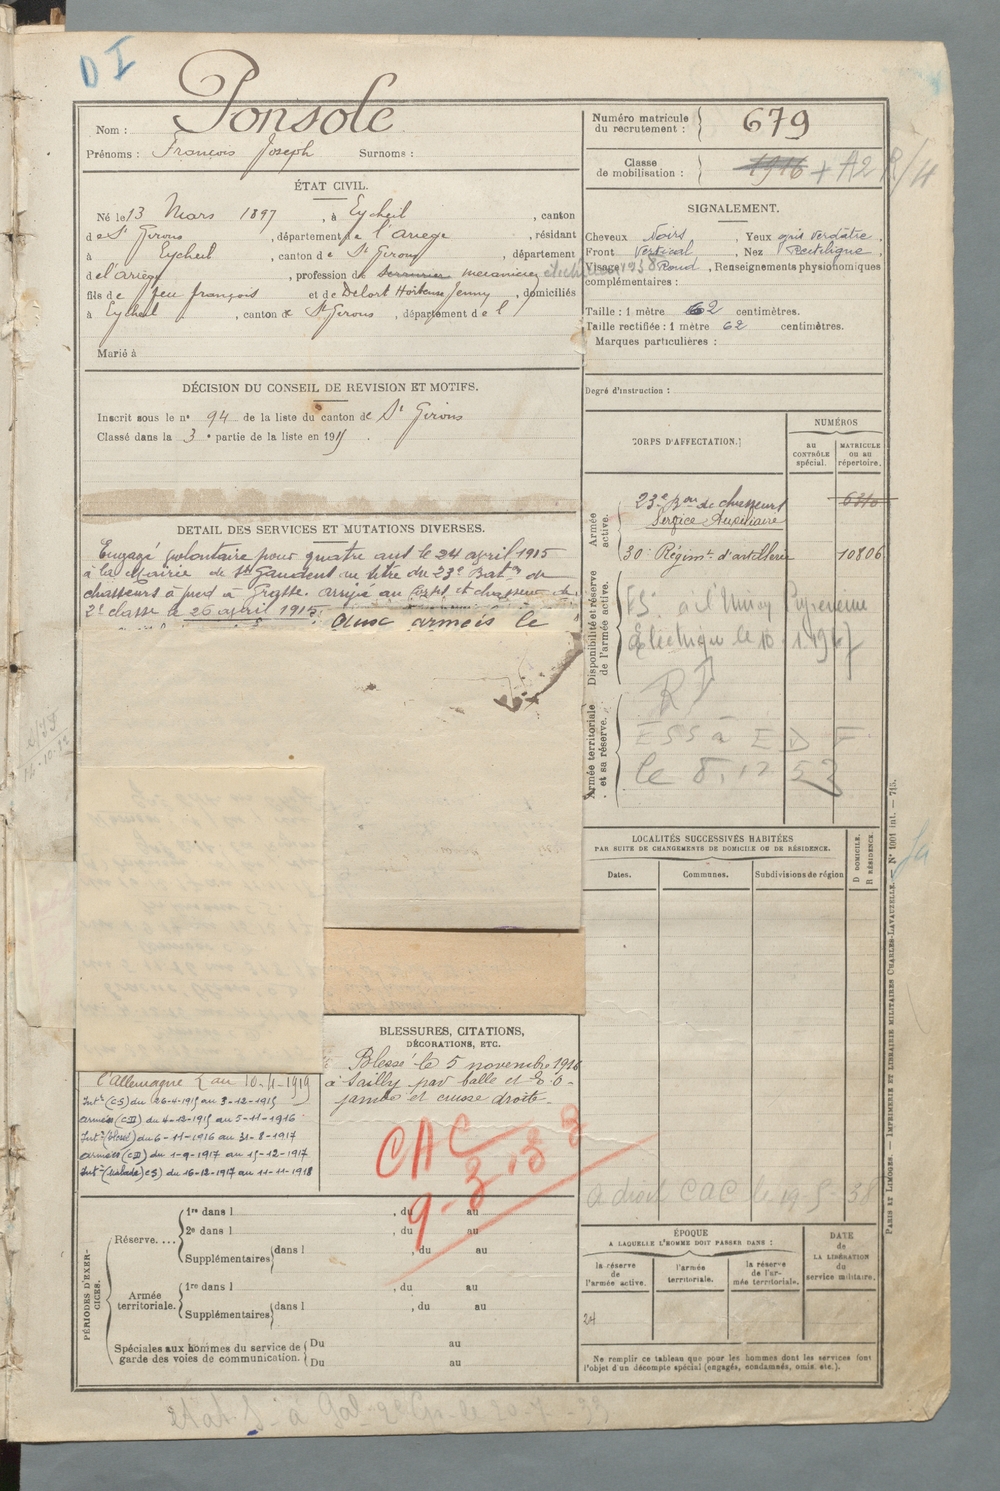 D I
Nom : Ponsole
Prénoms : François Joseph Surnoms :
Numéro matricule du recrutement : 679
Classe de mobilisation : 1916 + A2 R/4
ÉTAT CIVIL.
Né le 13 Mars 1897, à Eycheil, canton
de St Girons, département de l'ariege, résidant
à Eycheil, canton de St Girons, département
de l'ariège, profession de serrurier mecanicien
fils de feu françois et de Delort Hortense Jenny, domiciliés
à Eycheil, canton de St Girons, département de l
Marié à
SIGNALEMENT.
Cheveux Noirs, Yeux gris verdâtre,
Front Vertical, Nez Rectiligne,
Visage Rond, Renseignements physionomiques
complémentaires :
Taille : 1 mètre 62 centimètres.
Taille rectifiée : 1 mètre 62 centimètres.
Marques particulières :
Degré d'instruction :
DÉCISION DU CONSEIL DE REVISION ET MOTIFS.
Inscrit sous le n° 94 de la liste du canton de St Girons
Classé dans la 3e partie de la liste en 1915.
DETAIL DES SERVICES ET MUTATIONS DIVERSES.
Engagé volontaire pour quatre ans le 24 avril 1915
à la Mairie de St Gaudens au titre du 23e Baton de
chasseurs à pied à Grasse. arrivé au Corps et chasseur de
2e classe le 26 avril 1915.
aux armées le
CORPS D'AFFECTATION.
NUMÉROS
AU CONTRÔLE spécial.
MATRICULE OU AU répertoire.
Armée active.
23e Bon de chasseurs 6310
Service Auxiliaire
30e Régimt d'artillerie 10806
Disponibilité et réserve de l'armée active.
à l'Union Pyrénéenne
Électrique le 10.1.1947
Armée territoriale et sa réserve.
R I
ESS à E D F
le 8.12 52
LOCALITÉS SUCCESSIVES HABITÉES
PAR SUITE DE CHANGEMENTS DE DOMICILE OU DE RÉSIDENCE.
Dates.
Communes.
Subdivisions de région
D DOMICILE.
R RÉSIDENCE.
BLESSURES, CITATIONS,
DÉCORATIONS, ETC.
Blessé le 5 novembre 1916
à Sailly par balle et E. O -
jambe et cuisse droite -
l'Allemagne au 10-4-1919
Intr (CS) du 26-4-1915 au 3-12-1915
armées (CD) du 4-12-1915 au 5-11-1916
Intr (blessé) du 6-11-1916 au 31-8-1917
armées (CD) du 1-9-1917 au 15-12-1917
Intr (malade) CS) du 16-12-1917 au 11-11-1918
CAC
9-3.38
a droit CAC le 19-5-38
PÉRIODES D'EXERCICES.
Réserve....
1re dans l , du au
2e dans l , du au
Supplémentaires dans l , du au
Armée territoriale.
1re dans l , du au
Supplémentaires dans l , du au
Spéciales aux hommes du service de garde des voies de communication.
Du au
Du au
ÉPOQUE
A LAQUELLE L'HOMME DOIT PASSER DANS :
la réserve de l'armée active.
l'armée territoriale.
la réserve de l'armée territoriale.
DATE de LA LIBÉRATION du service militaire.
24
Ne remplir ce tableau que pour les hommes dont les services font
l'objet d'un décompte spécial (engagés, condamnés, omis, etc.).
PARIS ET LIMOGES. — IMPRIMERIE ET LIBRAIRIE MILITAIRES CHARLES-LAVAUZELLE. — N° 1001 int. — 715.